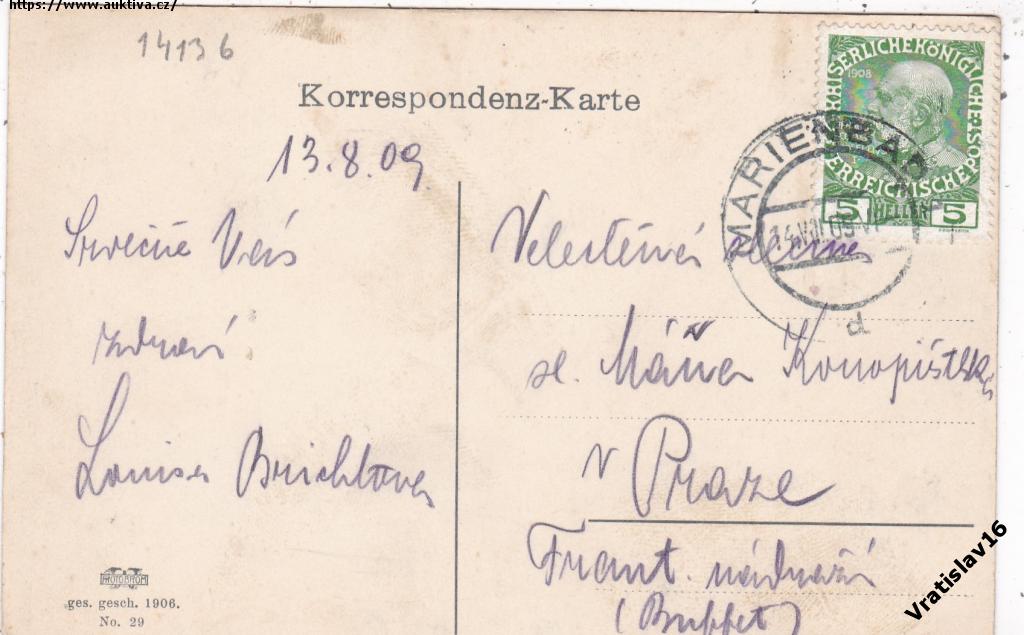 https://www.auktiva.cz/
14136
Korrespondenz-Karte
KAISERLICHE KÖNIGLICHE ÖSTERREICHISCHE POST
1908
5 HELLER 5
MARIENBAD
14.VIII.09
d
13.8.09.
Srdečně Vás
zdraví
Louisa Brichtova
Velectěná slečna
sl. Máňa Konopištská
v Praze
Frant. nádraží
(Buffet)
ges. gesch. 1906.
No. 29
Vratislav16